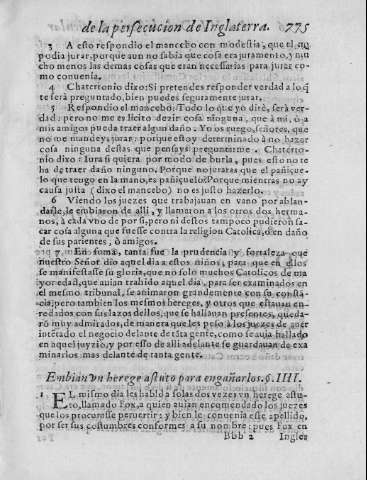 de la persecucion de Inglaterra. 775
3 A esto respondio el mancebo con modestia, que el no
podia jurar, porque aun no sabia que cosa era juramento, y mu
cho menos las demas cosas que eran necessarias para jurar co-
mo conuenia.
4 Chatertonio dixo: Si pretendes responder verdad a lo q̃
te será preguntado, bien puedes seguramente jurar.
5 Respondio el mancebo: Todo lo que yo diré, será ver-
dad: pero no me es licito dezir cosa ninguna, que à mi, ò a
mis amigos pueda traer algun daño. Yo os ruego, señores, que
no me mandeys jurar: porque estoy determinado à no hazer
cosa ninguna destas que pensays preguntarme. Chaterto-
nio dixo: Iura si quiera por modo de burla, pues esto no te
ha de traer daño ninguno. Porque no juraras que el pañiçue-
lo que tengo en la mano, es pañiçuelo? Porque mientras no ay
causa justa (dixo el mancebo) no es justo hazerlo.
6 Viendo los juezes que trabajauan en vano por ablan-
darle, le embiaron de alli, y llamaron a los otros dos herma-
nos, à cada vno de por si, pero ni destos tampoco pudieron sa-
car cosa alguna que fuesse contra la religion Catolica, ò en daño
de sus parientes, ò amigos.
7 En soma, tanta fue la prudencia y fortaleza que
nuestro Señor dio aquel dia a estos niños, para que en ellos
se manifestasse su gloria, que no solo muchos Catolicos de ma
yor edad, que auian trahido aquel dia, para ser examinados en
el mesmo tribunal, se animaron grandemente con su consta-
cia; pero tambien los mesmos hereges, y otros que estauan en-
redados con sus lazos dellos, que se hallauan presentes, queda-
rõ muy admirados, de manera que les pesò a los juezes de auer
intentado el negocio delante de tãta gente, como se auia hallado
en aquel juyzio, y por esso de alli adelante se guardauan de exa
minarlos mas delante de tanta gente.
Embian vn herege astuto para engañarlos. §. IIII.
1 EL mismo dia les hablò a solas dos vezes vn herege astu-
to, llamado Fox, a quien auian encomendado los juezes
que los procurasse peruertir: y bien le conuenia este apellido,
por ser sus costumbres conformes a su nombre: pues Fox en
Bbb 2 Ingles